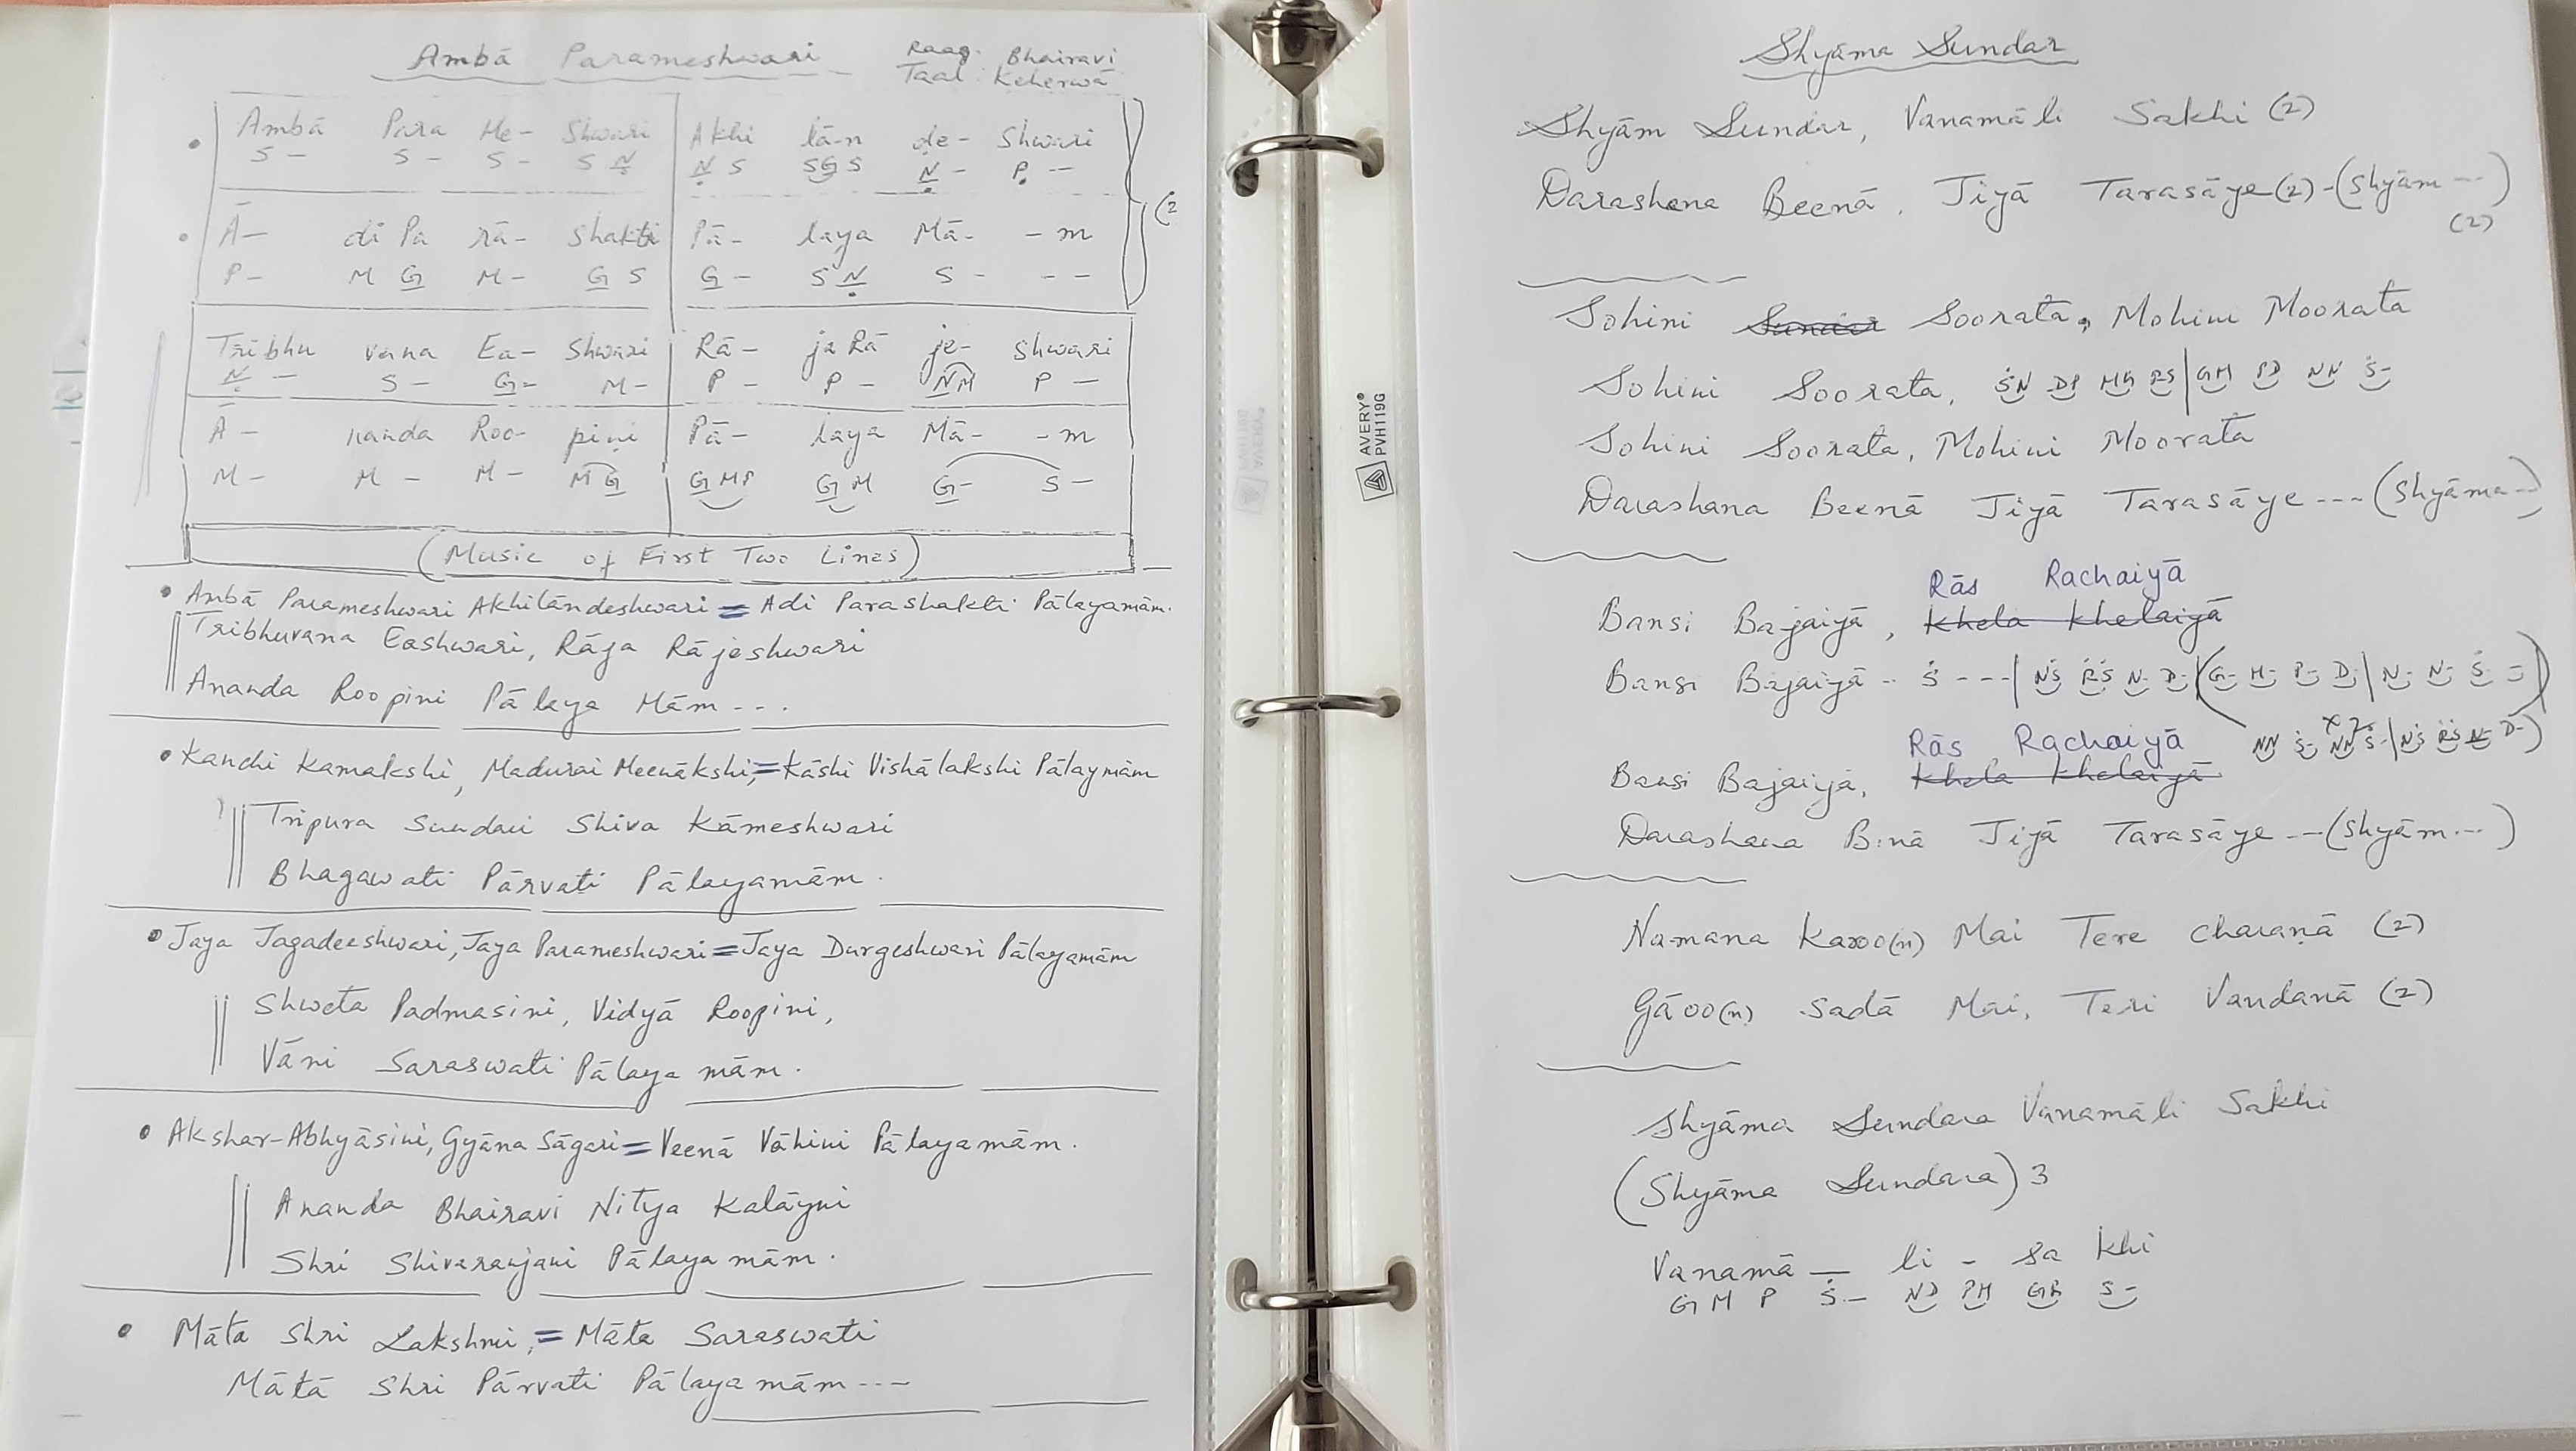 Ambā Parameshwari
Raag. Bhairavi
Taal Keherwā
Ambā Para Me- Shwari | Akhi lā-n de- Shwari
S - S - S - S Ṇ | Ṇ S SGS Ṇ - P̣ --
Ā- di Pa rā- Shakti | Pā- laya Mā- - m
P - M G M - G S | G - S Ṇ S - - -
(2
Tribhu vana Ea- Shwari | Rā- ja Rā je- Shwari
Ṇ - S - G - M - | P - P - NM P -
Ā - nanda Roo- pini | Pā- laya Mā- - m
M - M - M - M G | G MP G M G - S -
(Music of First Two Lines)
• Ambā Parameshwari Akhilāndeshwari = Adi Parashakti Pālayamām.
Tribhuvana Eashwari, Rāja Rājeshwari
Ananda Roopini Pālaya Mām - - .
• Kanchi Kamakshi, Madurai Meenākshi, = Kāshi Vishālakshi Pālaymām
Tripura Sundari Shiva Kāmeshwari
Bhagawati Pārvati Pālayamām.
• Jaya Jagadeeshwari, Jaya Parameshwari = Jaya Durgeshwari Pālayamām
Shweta Padmasini, Vidyā Roopini,
Vāni Saraswati Pālaya mām.
• Akshar-Abhyāsini, Gyāna Sāgari = Veenā Vāhini Pālayamām.
Ananda Bhairavi Nitya Kalāyni
Shri Shivaranjani Pālaya mām.
• Māta Shri Lakshmi, = Māta Saraswati
Mātā Shri Pārvati Pālaya mām ---
AVERY®
PVH119G
Shyāma Sundar
Shyām Sundar, Vanamāli Sakhi (2)
Darashana Beenā, Jiyā Tarasāye (2) - (Shyām ---)
(2)
Sohini Sundar Soorata, Mohini Moorata
Sohini Soorata, ṠN DP MG RS | GM PD NN Ṡ-
Sohini Soorata, Mohini Moorata
Darashana Beenā Jiyā Tarasāye --- (Shyāma --)
Rās Rachaiyā
Bansi Bajaiyā, Khela Khelaiyā
Bansi Bajaiyā - - Ṡ - - - | NṠ ṘṠ N- D- | (G- M- P- D- | N- N- Ṡ -)
Rās Rachaiyā
NN Ṡ- NN Ṡ- | NṠ ṘṠ N- D-)
Bansi Bajaiyā, Khela Khelaiyā
Darashana Binā Jiyā Tarasāye --- (Shyām ---)
Namana Karoo(n) Mai Tere Charaṇā (2)
Gāoo(n) Sadā Mai, Teri Vandanā (2)
Shyāma Sundara Vanamāli Sakhi
(Shyāma Sundara) 3
Vanamā — li - sa khi
G M P Ṡ - ND PM GR S -